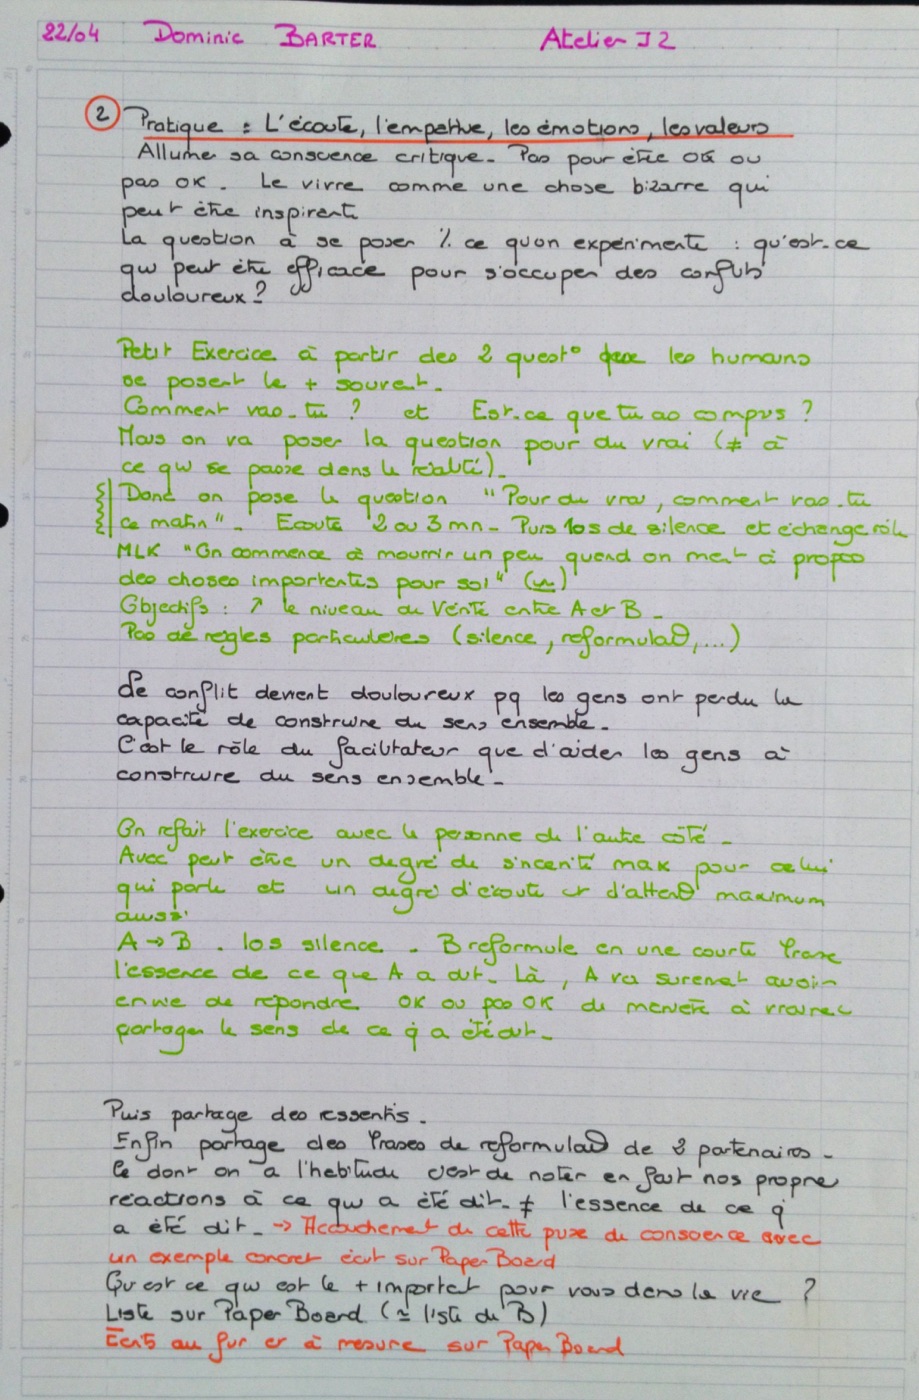 22/04 Dominic BARTER Atelier J2
2 Pratique : L'écoute, l'empathie, les émotions, les valeurs
Allume sa conscience critique. Pas pour être OK ou
pas OK. Le vivre comme une chose bizarre qui
peut être inspirante
La question à se poser % ce qu'on expérimente : qu'est-ce
qui peut être efficace pour s'occuper des conflits
douloureux ?
Petit Exercice à partir des 2 quest° que les humains
se posent le + souvent.
Comment vas-tu ? et Est-ce que tu as compris ?
Mais on va poser la question pour du vrai (≠ à
ce qui se passe dans la réalité).
Donc on pose la question "Pour du vrai, comment vas-tu
ce matin". Ecoute 2 ou 3 mn. Puis 10s de silence et échange rôle
MLK "On commence à mourrir un peu quand on ment à propos
des choses importantes pour soi" (≃)
Objectifs : ↗ le niveau de Vérité entre A et B.
Pas de règles particulières (silence, reformulat°, ...)
Le conflit devient douloureux pq les gens ont perdu la
capacité de construire du sens ensemble.
C'est le rôle du facilitateur que d'aider les gens à
construire du sens ensemble.
On refait l'exercice avec la personne de l'autre côté.
Avec peut être un degré de sincérité max pour celui
qui parle et un degré d'écoute et d'attent° maximum
aussi.
A → B. 10s silence. B reformule en une courte Phrase
l'essence de ce que A a dit. Là, A va surement avoir
envie de répondre OK ou pas OK de manière à vraimt
partager le sens de ce q̇ a été dit.
Puis partage des ressentis.
Enfin partage des Phrases de reformulat° de 2 partenaires.
Ce dont on a l'habitude c'est de noter en fait nos propre
réactions à ce qui a été dit. ≠ l'essence de ce q̇
a été dit. → Accouchement de cette prise de conscience avec
un exemple concret écrit sur Paper Board
Qu'est ce qui est le + important pour vous dans la vie ?
Liste sur Paper Board (≃ liste de B)
Ecrits au fur et à mesure sur Paper Board